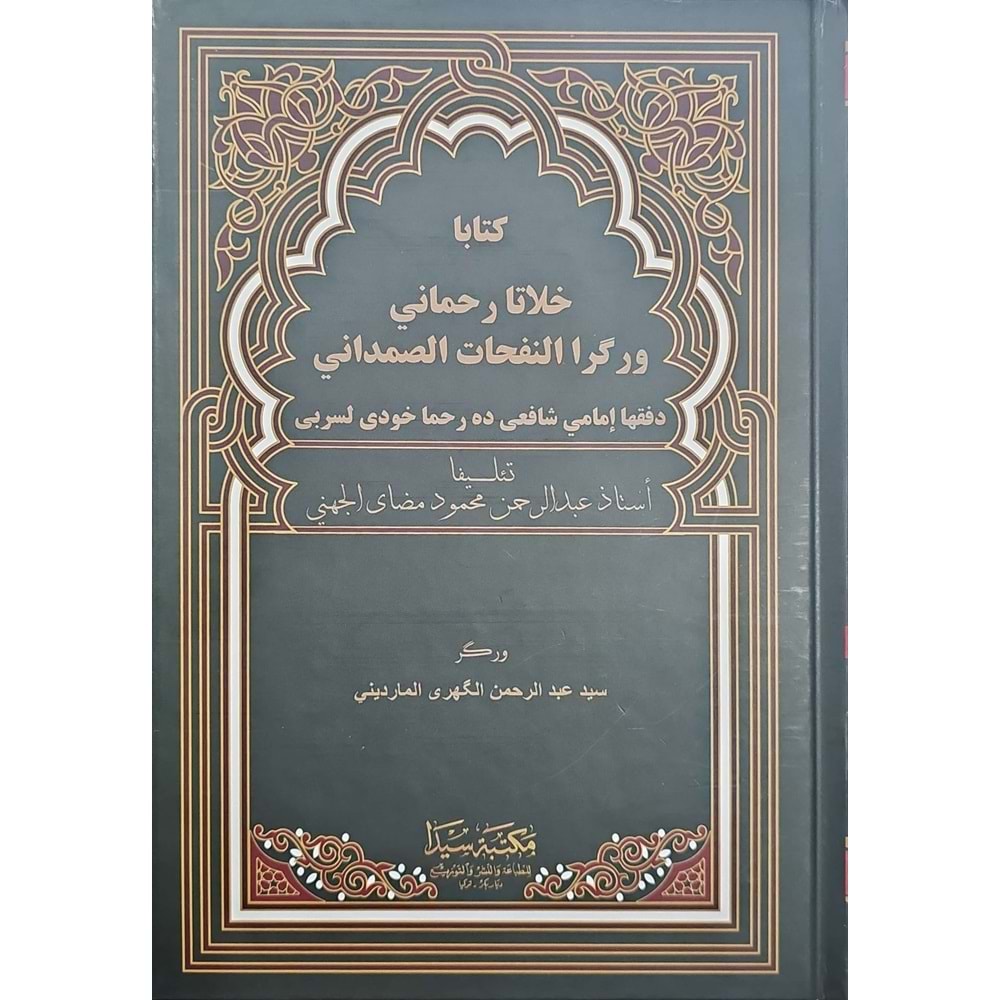 كتابا
خلاتا رحماني
ورگرا النفحات الصمداني
دفقها إمامي شافعى ده رحما خودى لسربى
تئليفا
أستاذ عبدالرحمن محمود مضاى الجهني
ورگر
سيد عبد الرحمن الگهرى المارديني
مكتبة سيدا
للطباعة والنشر والتوزيع
ديار بكر - تركيا